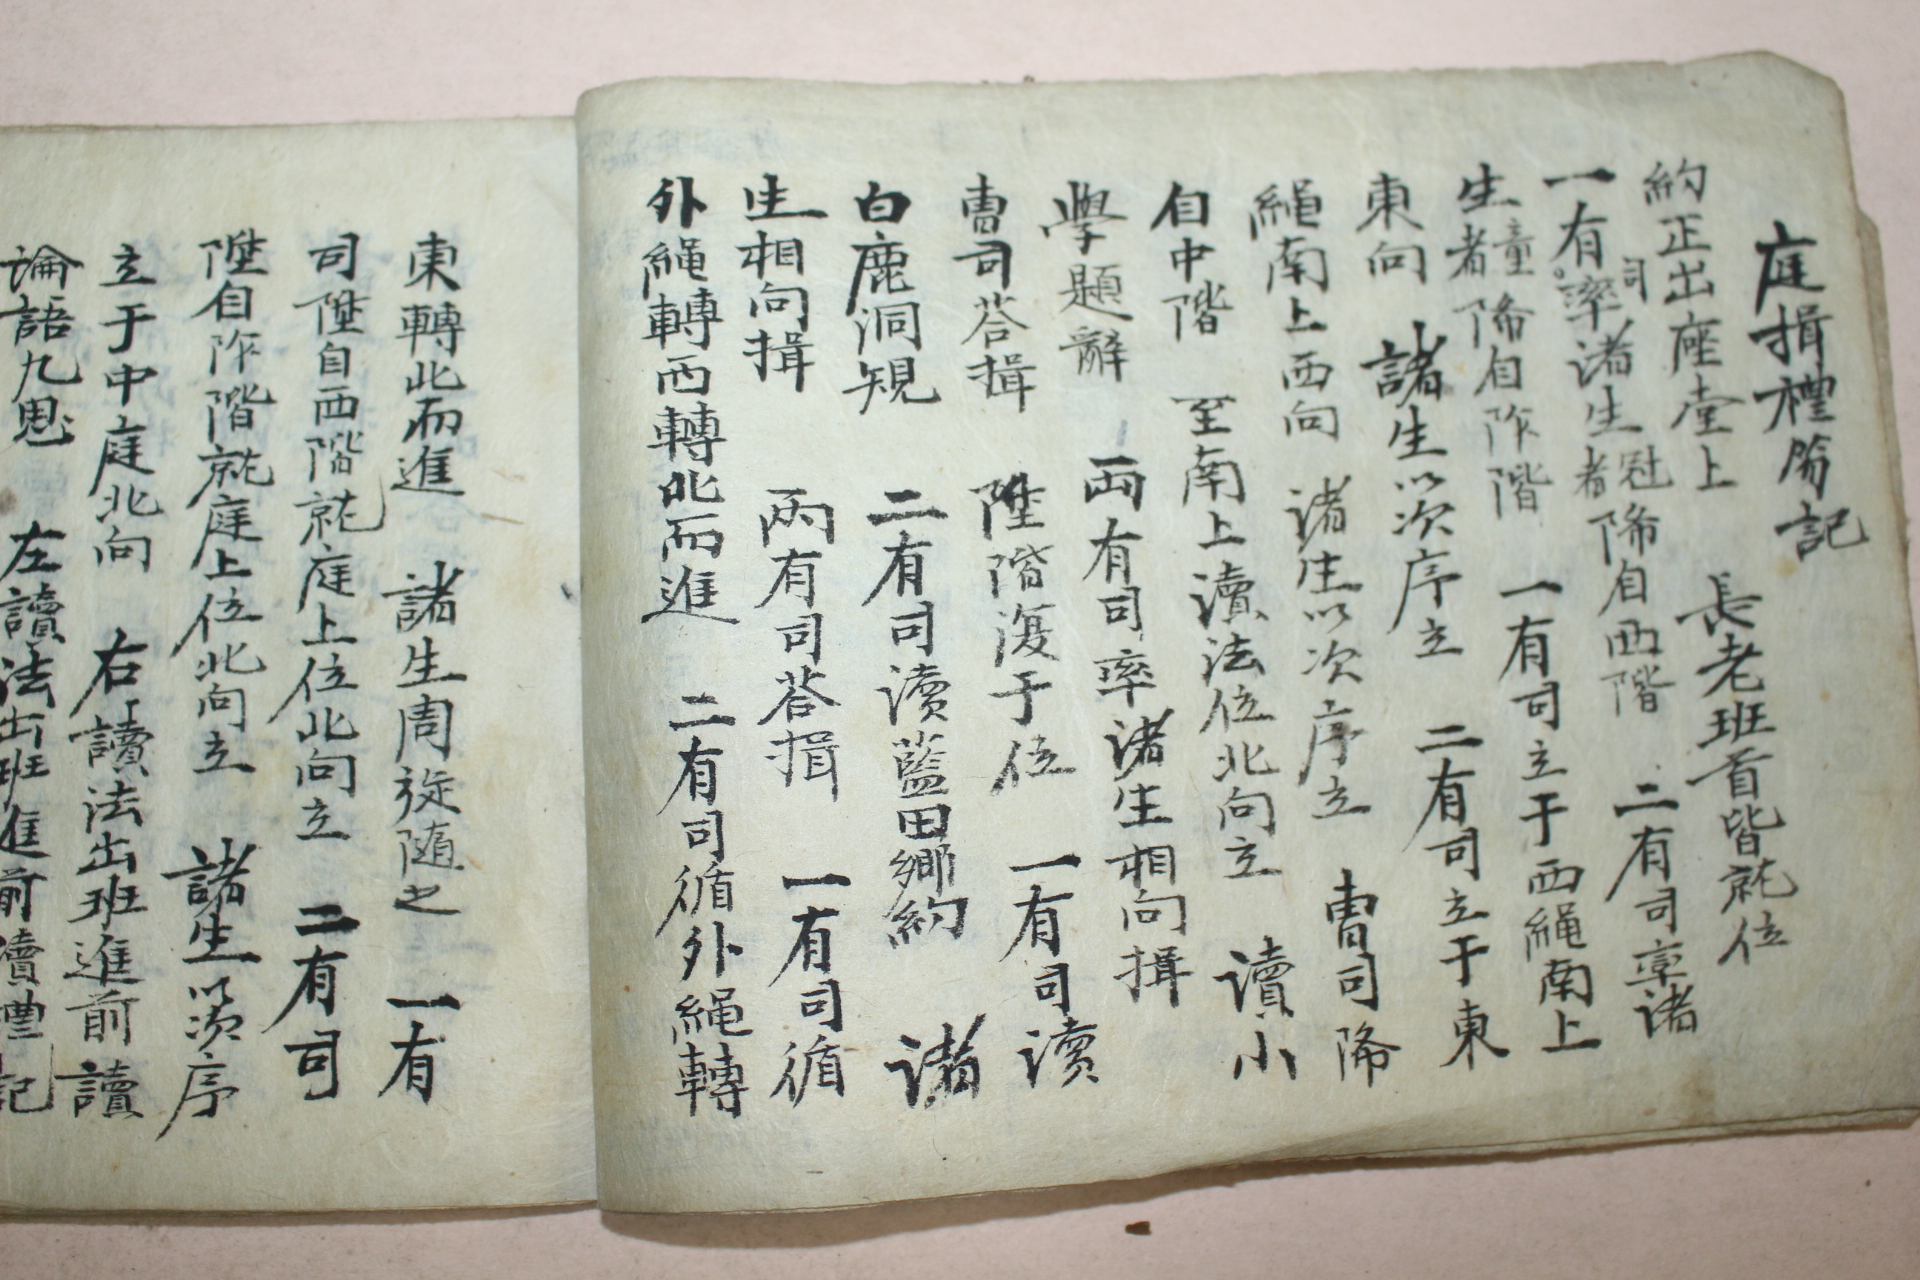 庭揖禮笏記
長老班首皆就位
約正出座堂上
二有司率諸
一有司率諸生冠者降自西階
生童者降自阼階
一有司立于西繩南上
東向
諸生以次序立
二有司立于東
繩南上西向
諸生以次序立
曹司降
自中階
至南上讀法位北向立
讀小
學題辭
兩有司率諸生相向揖
曹司答揖
陞階復于位
一有司讀
白鹿洞規
二有司讀藍田鄉約
諸
生相向揖
兩有司答揖
一有司循
外繩轉西轉北而進
二有司循外繩轉
東轉北而進
諸生周旋隨之
一有
司陞自西階就庭上位北向立
二有司
陞自阼階就庭上位北向立
諸生以次序
立于中庭北向
右讀法出班進前讀
論語九思
左讀法出班進前讀禮記